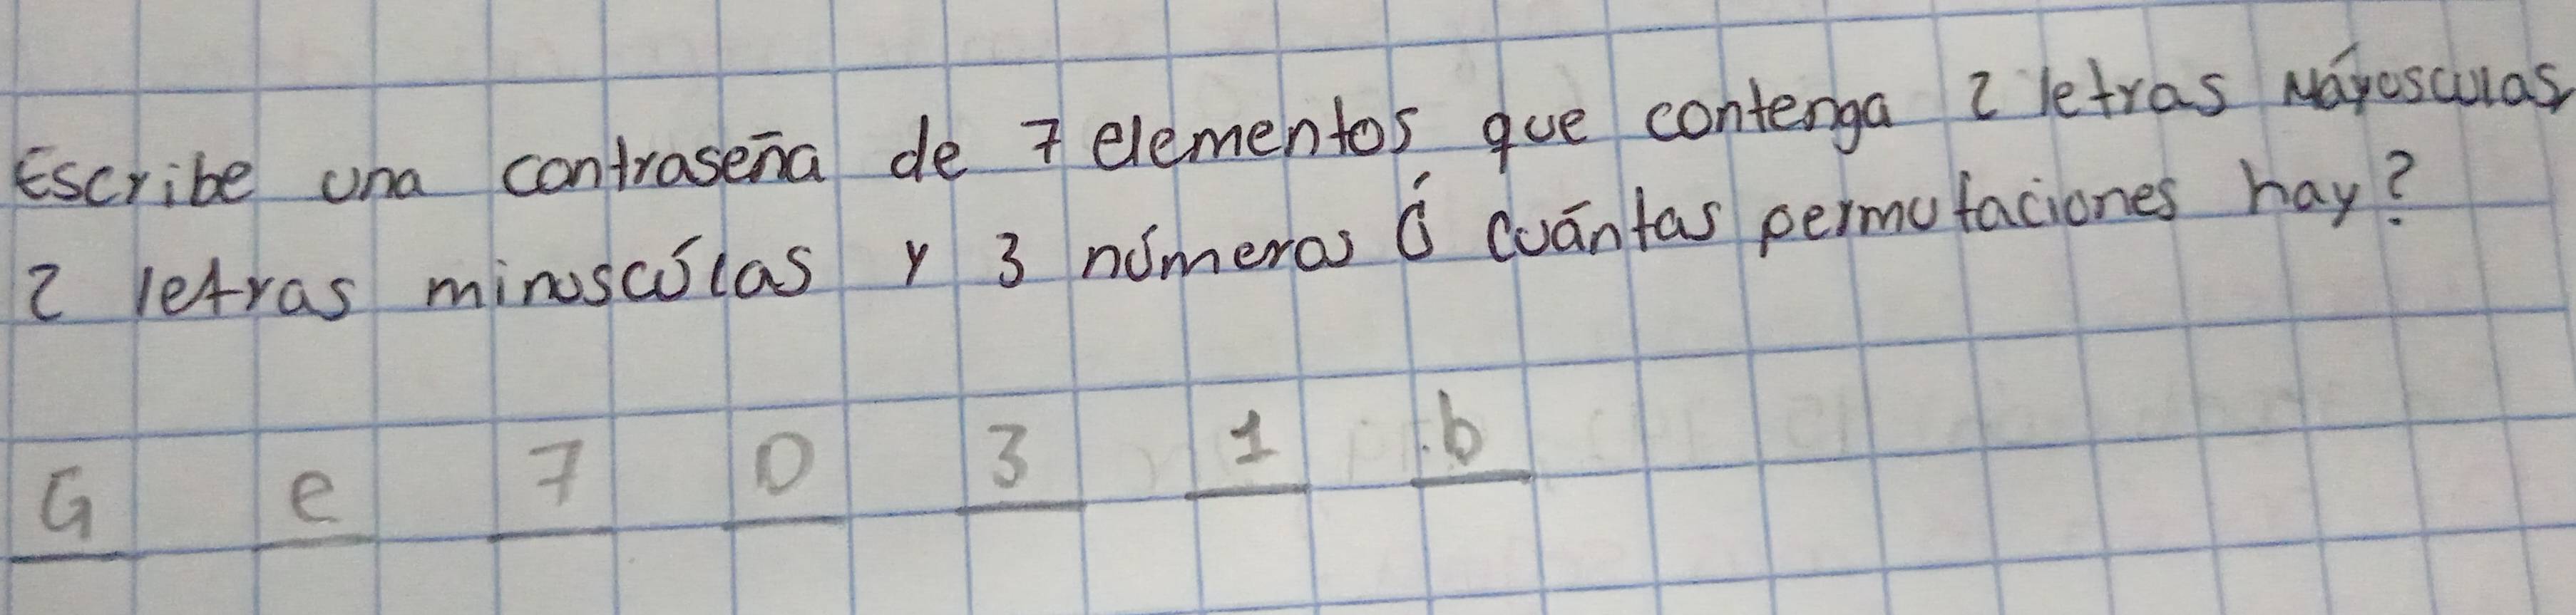 Escribe una contraseña de 7 elementos que contenga 2 letras Máyusculas,
2 letras minuscúlas y 3 números ¿ cuántas permutaciones hay?
G e 7 D 3 1 b